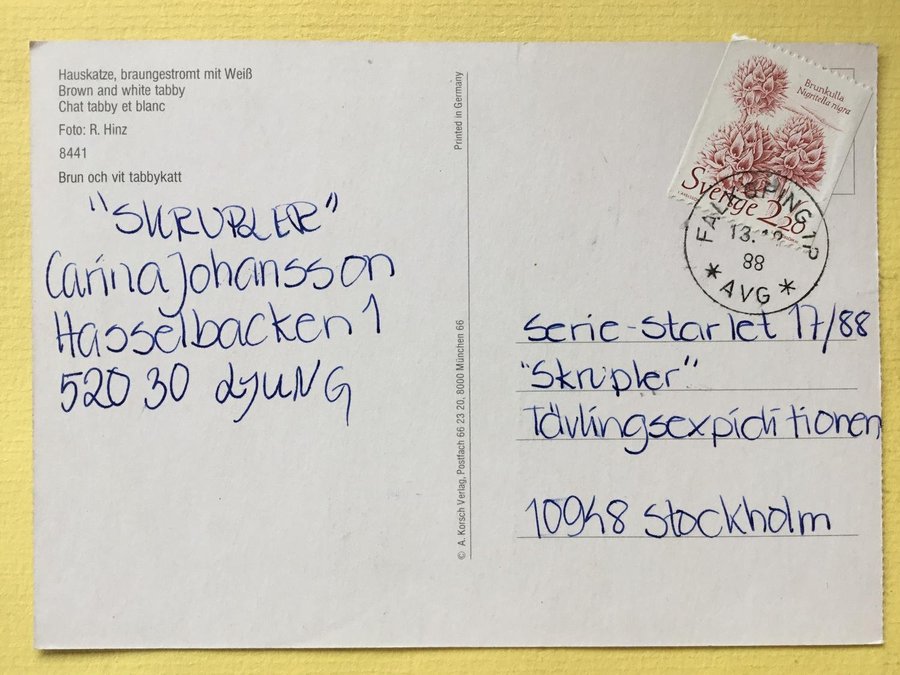 Hauskatze, braungestromt mit Weiß
Brown and white tabby
Chat tabby et blanc
Foto: R. Hinz
8441
Brun och vit tabbykatt
"SKRUPLER"
Carina Johansson
Hasselbacken 1
520 30 LJUNG
Printed in Germany
© A. Korsch Verlag, Postfach 66 23 20, 8000 München 66
Brunkulla
Nigritella nigra
Sverige 2 20
FALKÖPING 1P
13.12
88
* AVG *
Serie-Starlet 17/88
"Skrupler"
Tävlingsexpiditionen
10948 Stockholm